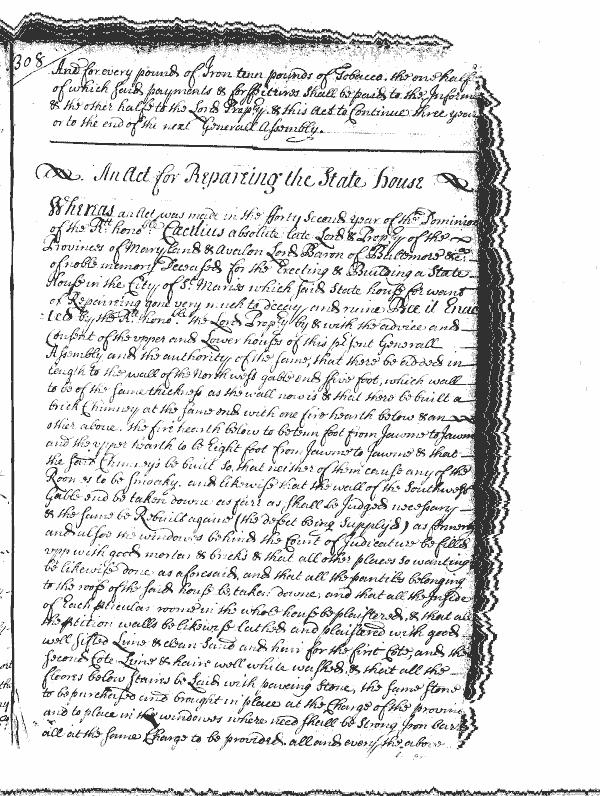 308
And for every pound of Iron tenn pounds of Tobacco. the one half
of which said payments & forfeitures shall be paid to the Inform
& the other halfe to the Lord Propry. & this Act to Continue three year
or to the end of the next Generall Assembly.
An Act for Repaireing the State house
Whereas an Act was made in the fforty Second year of the Dominion
of the Rtt honoble Cæcilius absolute late Lord & Propry of the
Provinces of Maryland & Avalon Lord Baron of Baltemore &c.
of noble memory Deceased for the Erecting & Building a State
House in the City of St. Maries which said State house for want
of Repairing gone very much to decay and ruine Bee it Enac
ted by the Rtt. honoble. the Lord Propry by & with the advice and
Consent of the upper and Lower houses of this pr.sent Generall
Assembly and the authority of the same, that there be added in
length to the wall of the North west gable end five foot, which wall
to be of the same thickness as the wall now is & that there be built a
brick Chimney at the same end with one fire hearth below & an
other above. the fire hearth below to be tenn foot from Jawme to Jawm
and the upper hearth to be Eight foot from Jawme to Jawme & that
the said Chimneys be built so, that neither of them cause any of the
Roomes to be smoaky. and likewise that the wall of the Southwest
Gable end be taken downe as farr as shall be Judged necessary
& the same be Rebuilt againe (the defect being Supplyed) as
and alsoe the windowes behind the Court of Judicature be filled
upp with good mortar & bricks & that all other places so wanting
be likewise done as aforesaid, and that all the pantiles belonging
to the roofe of the said house be taken downe, and that all the Inside
of Each pticular roome in the whole house be plaistered, & that all
the ptition walls be likewise lathed and plaistered with good
well sifted Lime & clean Sand and hair for the first Cote, and the
second Cote Lime & haire well white washed. & that all the
floores below staires be Laid with paveing Stone, the same stone
to be purchased and brought in place at the Charge of the province
and to place in the windowes where need shall be Strong Iron barrs
all at the same Charge to be provided. all and every the above